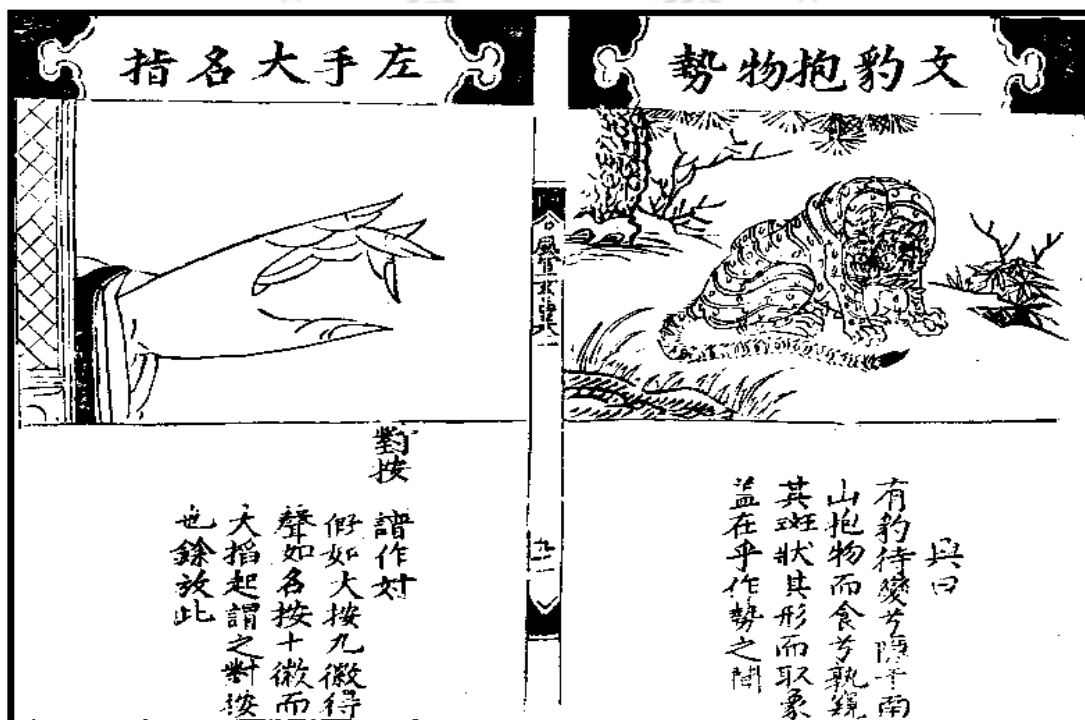 文豹抱物勢
興曰
有豹待變兮隱乎南
山抱物而食兮孰窺
其斑狀其形而取象
盖在乎作勢之間
左手大名指
對按 譜作対
假如大按九徽得
聲如名按十徽而
大搯起謂之對按
也餘放此